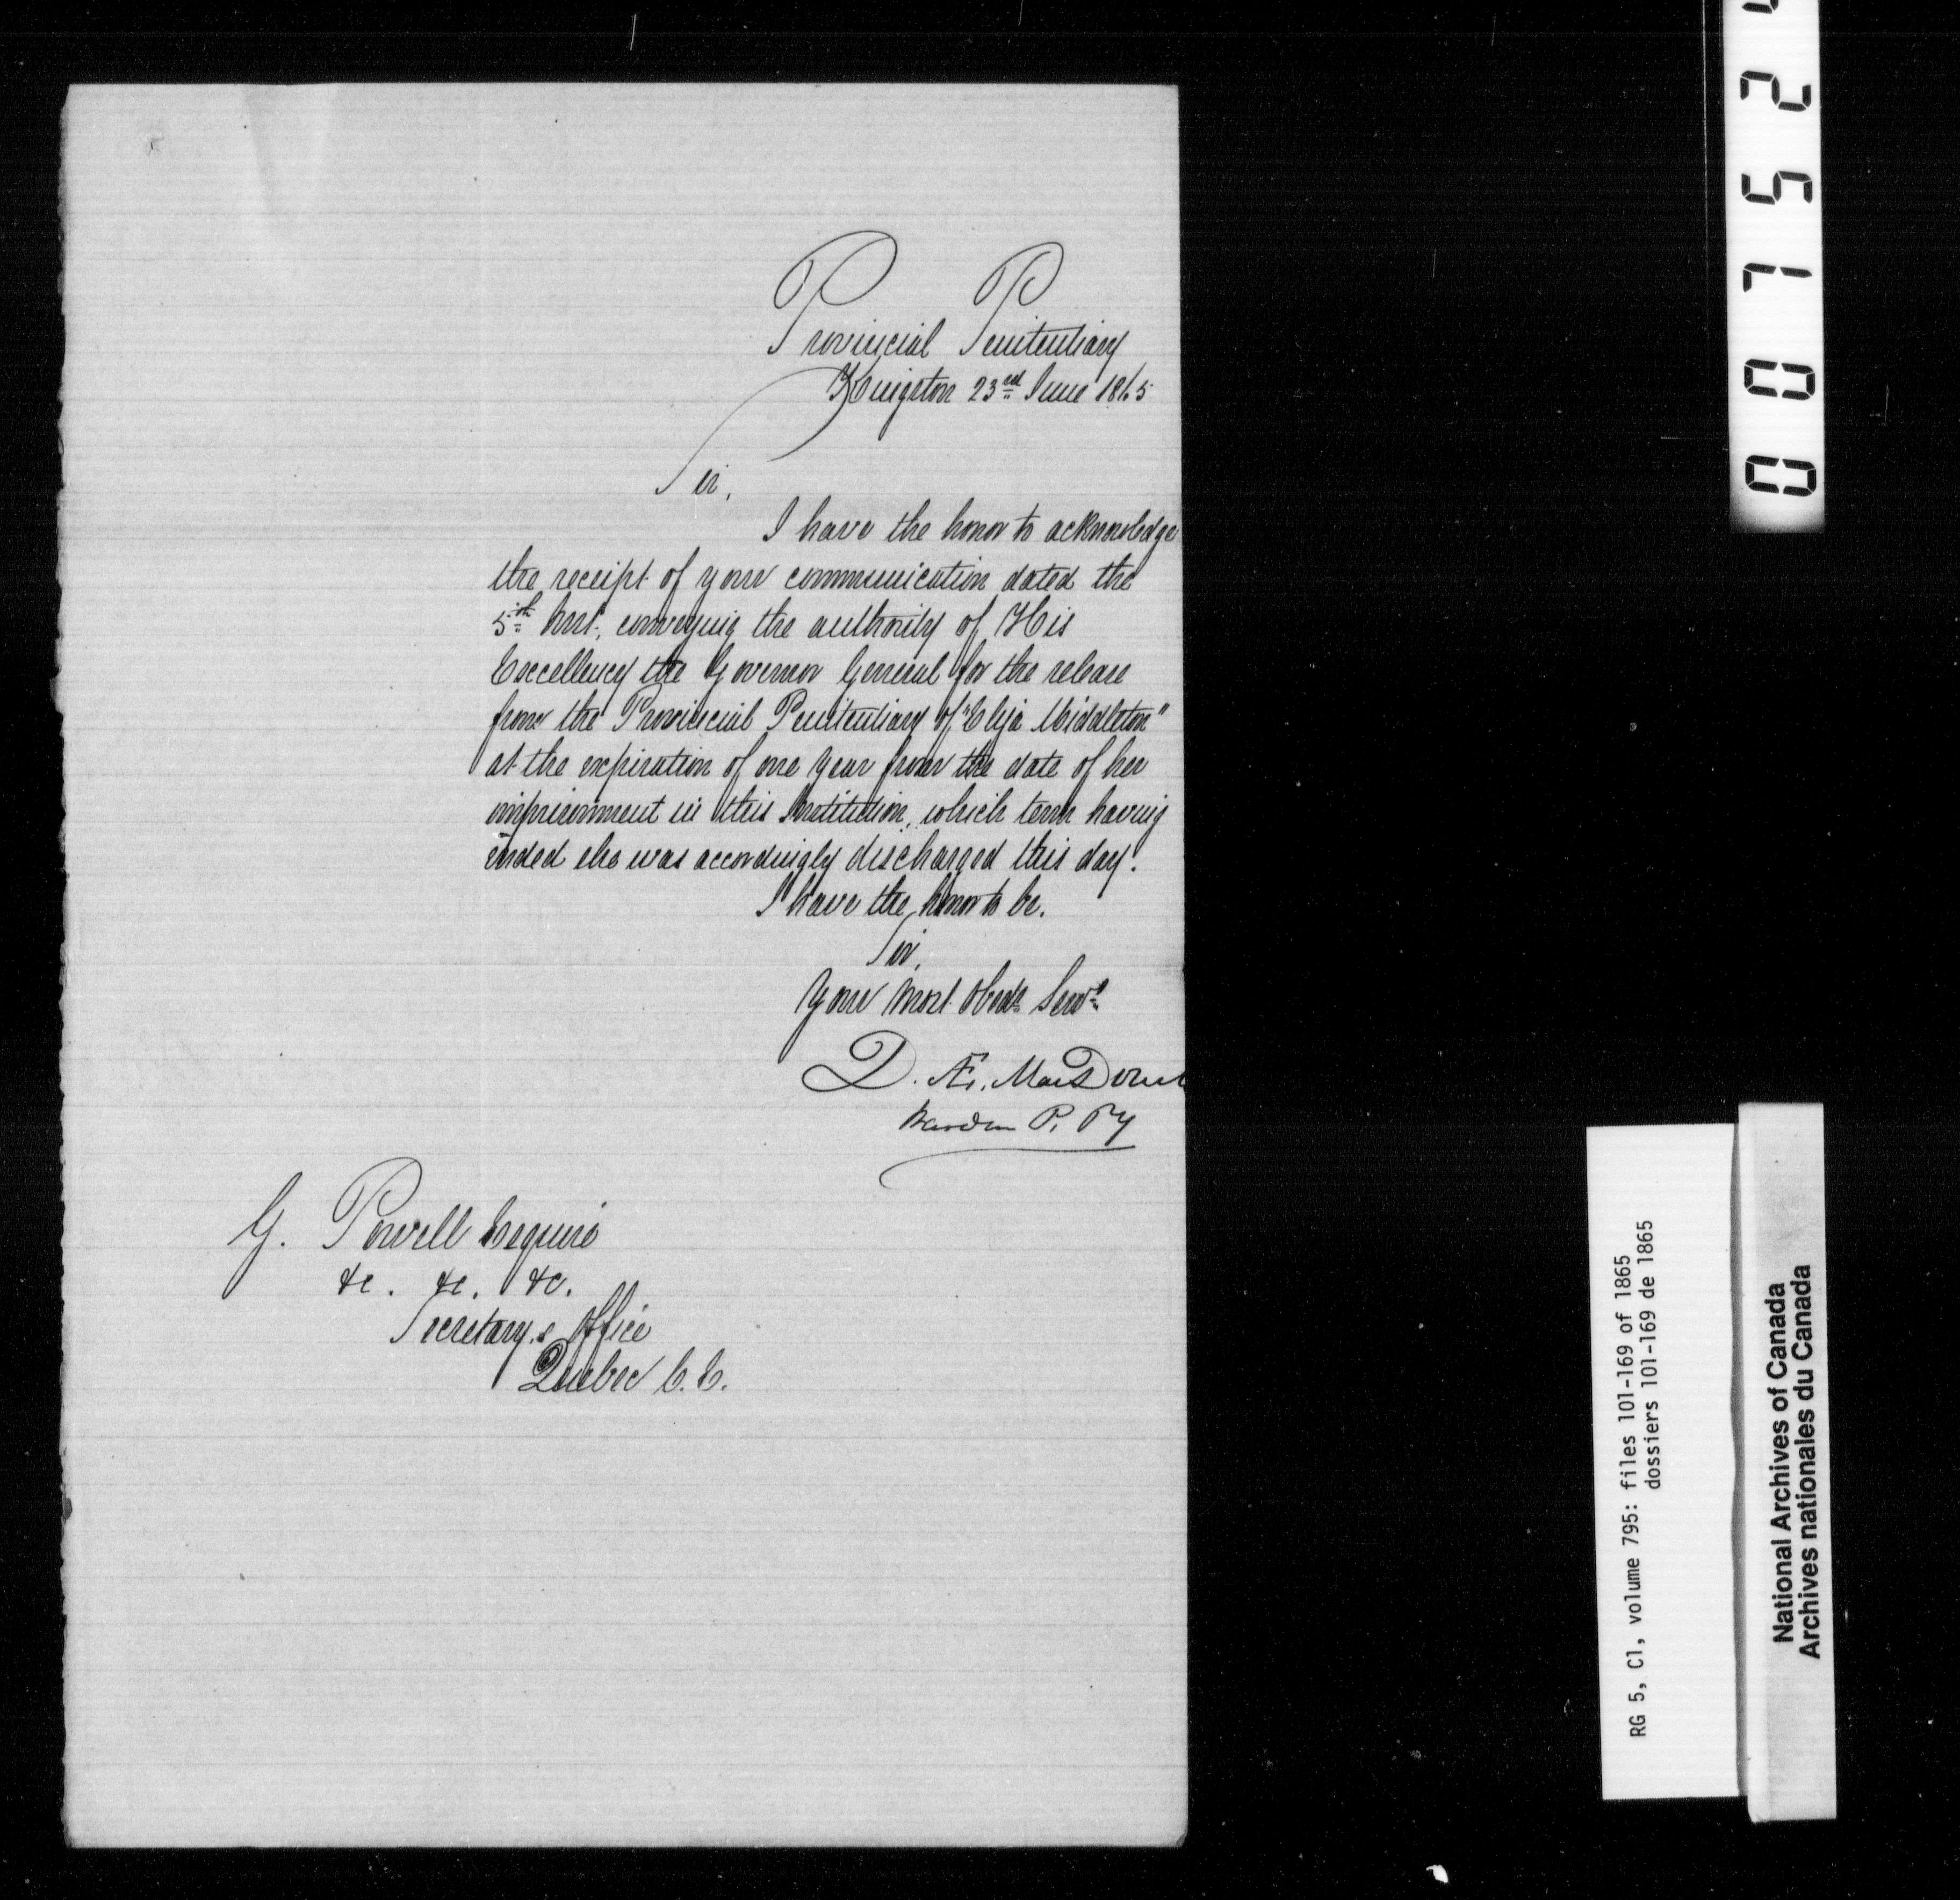 Provincial Penitentiary
Kingston 23rd June 1865
Sir,
I have the honor to acknowledge
the receipt of your communication dated the
5th Inst, conveying the authority of His
Excellency the Governor General for the release
from the Provincial Penitentiary of "Eliza Middleton"
at the expiration of one year from the date of her
imprisonment in this Institution, which term having
ended she was accordingly discharged this day.
I have the honor to be.
Sir,
Your most Obedt Servt
D. Æ. MacDonell
Warden P. Py
G. Powell Esquire
&c. &c. &c.
Secretary.s Office
Quebec C. E.
RG 5, C1, volume 795: files 101-169 of 1865
dossiers 101-169 de 1865
National Archives of Canada
Archives nationales du Canada
007524